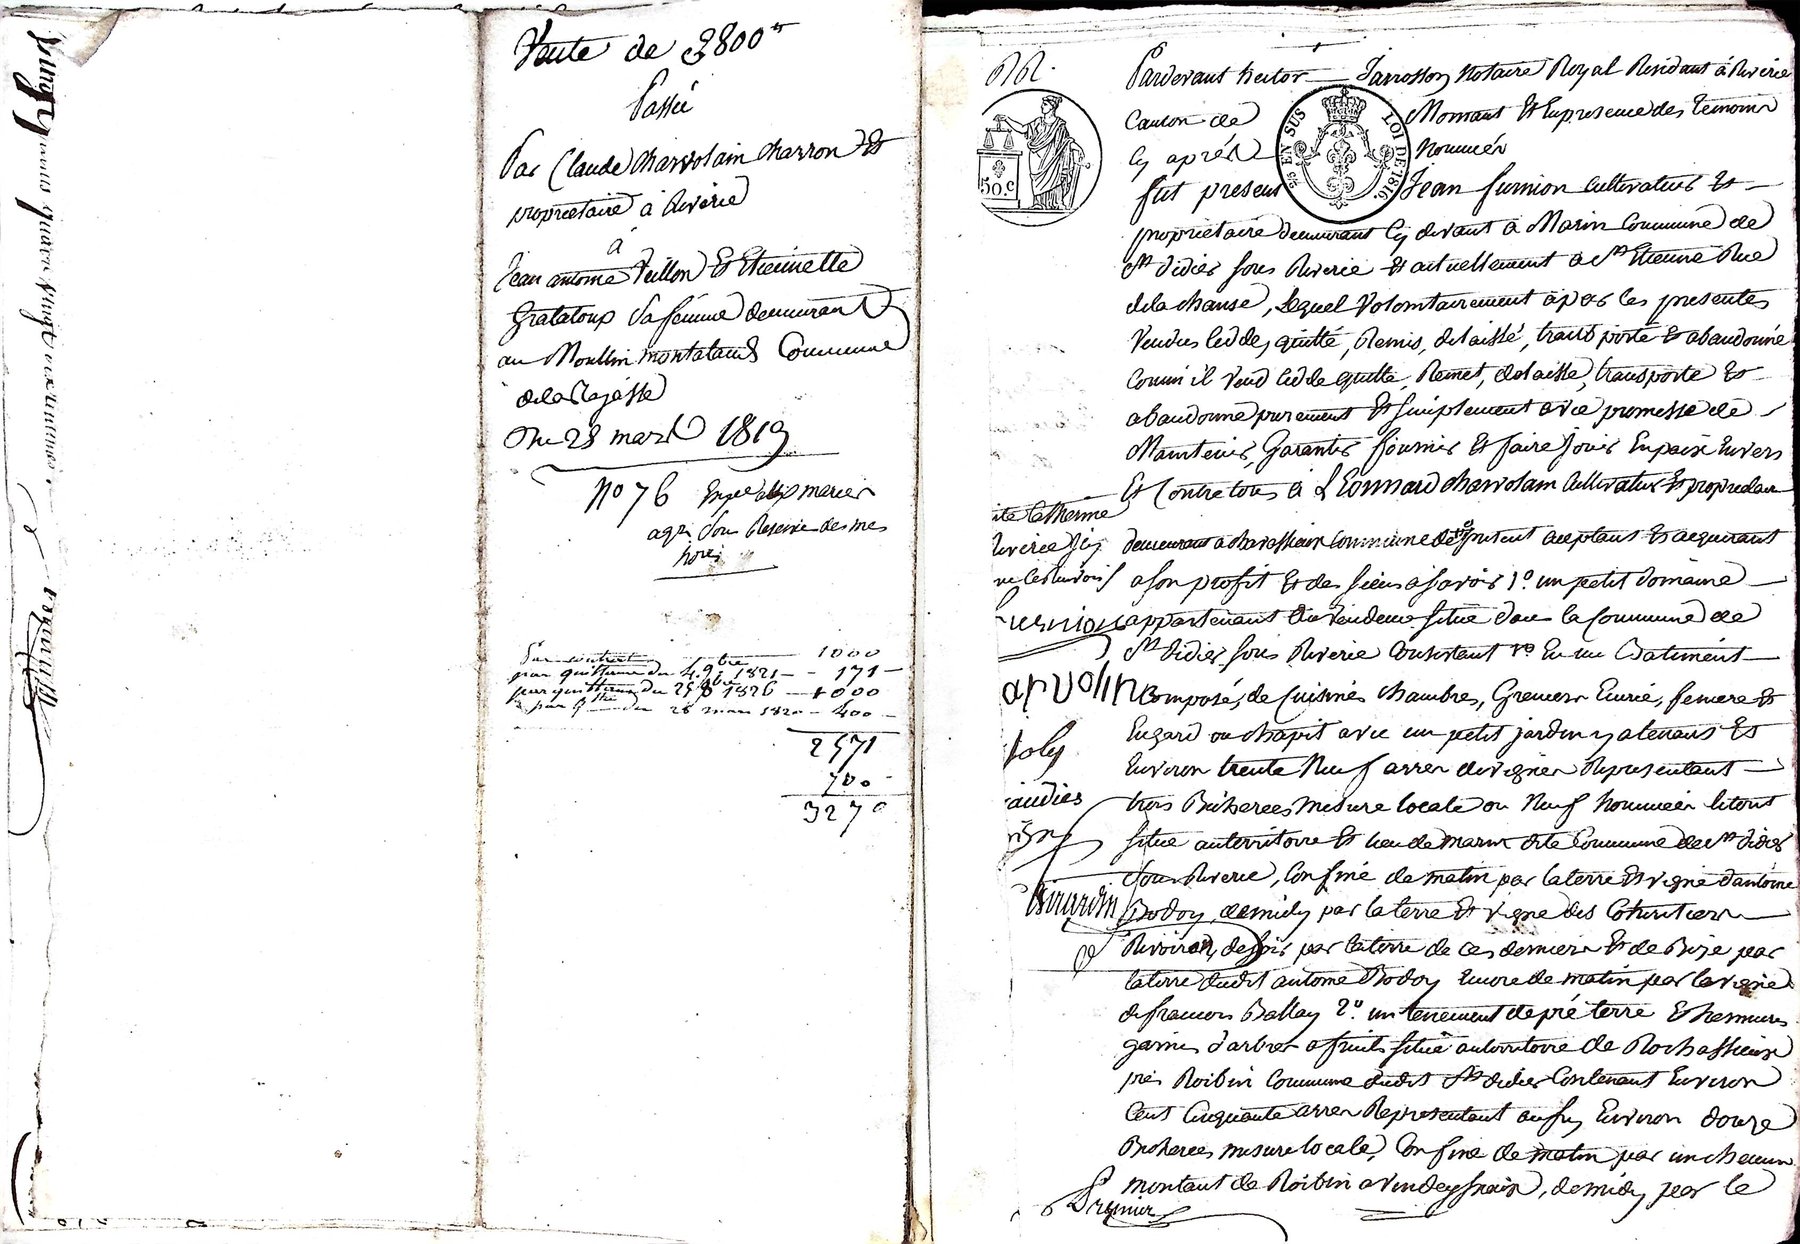 Vente de 2800#
Passée
Par Claude Charvolain charron Et
proprietaire à Riverie
à
Jean antoine Veillon Et Etiennette
Grataloup Sa femme demeurant
au Moullin montaland Commune
dela Rajasse
Du 28 mars 1819
No 76
agr Sous Reserve des mes
1000
par quittance du 4 9bre 1821 - - 171 -
par quittance du 25 1826 - 1000
par q du 28 mars 1820 - 400 -
2571
700
3270
Pardevant hector Jarrosson Notaire Royal Residant à Riverie
Canton de Mornant Et En presence des Temoins
Cy après Nommés
50.c
EN SUS LOI DE 1816.
fut present Jean furnion Cultivateur Et
propriétaire demeurant Cy devant à Marin Commune de
St Didier sous Riverie Et actuellement à St Etienne Rue
dela chause, Lequel Volontairement à par les presentes
Vendu cedde, quitté, Remis, delaissé, transporté Et abandonné
Comm'il Vend cedde quitte, Remet, delaisse, transporte Et
abandonne purement Et Simplement avec promesse de
Maintenir, Garantir fournir Et faire Jouir En paix Envers
Et Contre tous à Leonnard charvolain Cultivateur Et proprietaire
demeurant à chavassieux Commune de present aceptant Et aequirant
a son profit Et des siens a savoir 1o un petit Domaine
appartenant Au Vendeur Situé dans la Commune de
St Didier sous Riverie Consistant 1o En un Batiment
Composé, de Cuisine chambres, Greniers Ecurie, feniere Et
Engard ou chapit avec un petit jardin y atenant Et
Environ trente Neuf arres de vignes Representant
trois Bicherees mesure locale ou Neuf hommées le tout
Situé au territoire Et lieu de Marin dite Commune de St Didier
Sous Riverie, Confiné de matin par la terre Et vigne d'antoine
Bodoy, de midy par la terre Et vigne des Coheritiers
Rivoiron, de soir par la terre de ces derniers Et de Bize par
la terre dudit antoine Bodoy Encore de matin par la vigne
de francois Ballay 2o. un tenement de pré terre Et hermures
garnis d'arbres a fruits Situé au territoire de Rochassieux
près Roibin Commune dudit St Didier Contenant Environ
Cent Cinquante arres Representant aussy Environ douze
Bicherees mesure locale, Confiné de matin par un chemin
montant de Roibin a , de midy par le
ite Catherine
arvolin
Joly
audier
Girardin
Premier